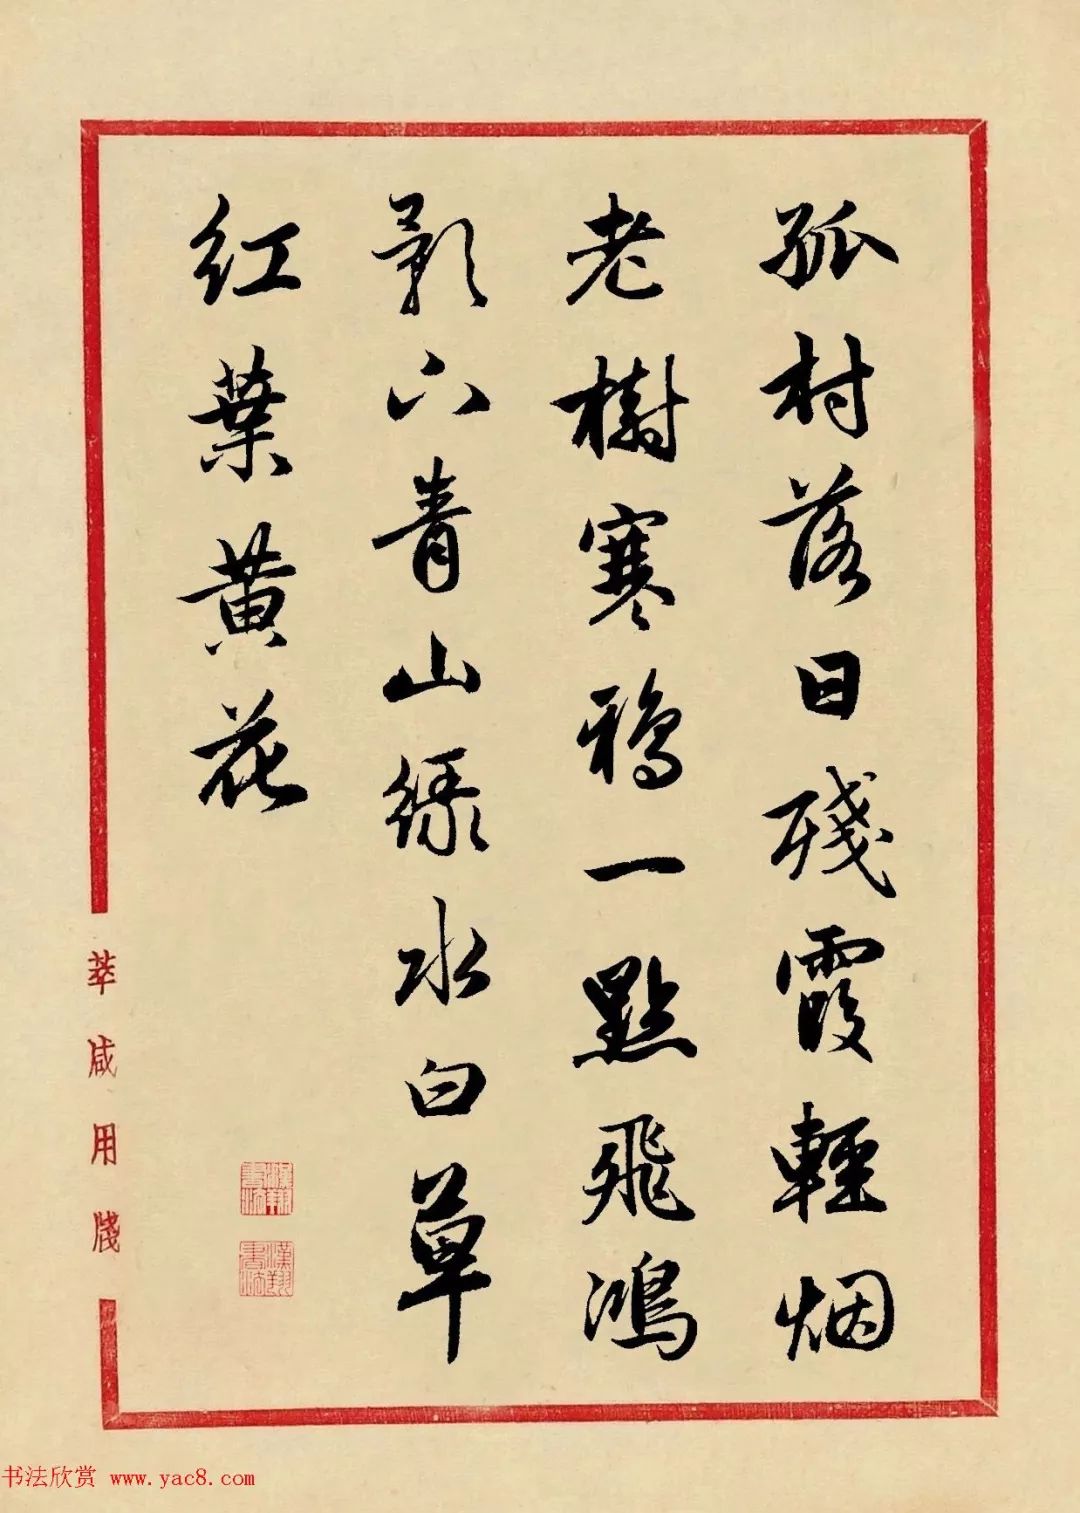 孤村落日殘霞輕烟
老樹寒鴉一點飛鴻
影下青山綠水白草
红葉黄花
莘咸用牋
書法欣赏 www.yac8.com